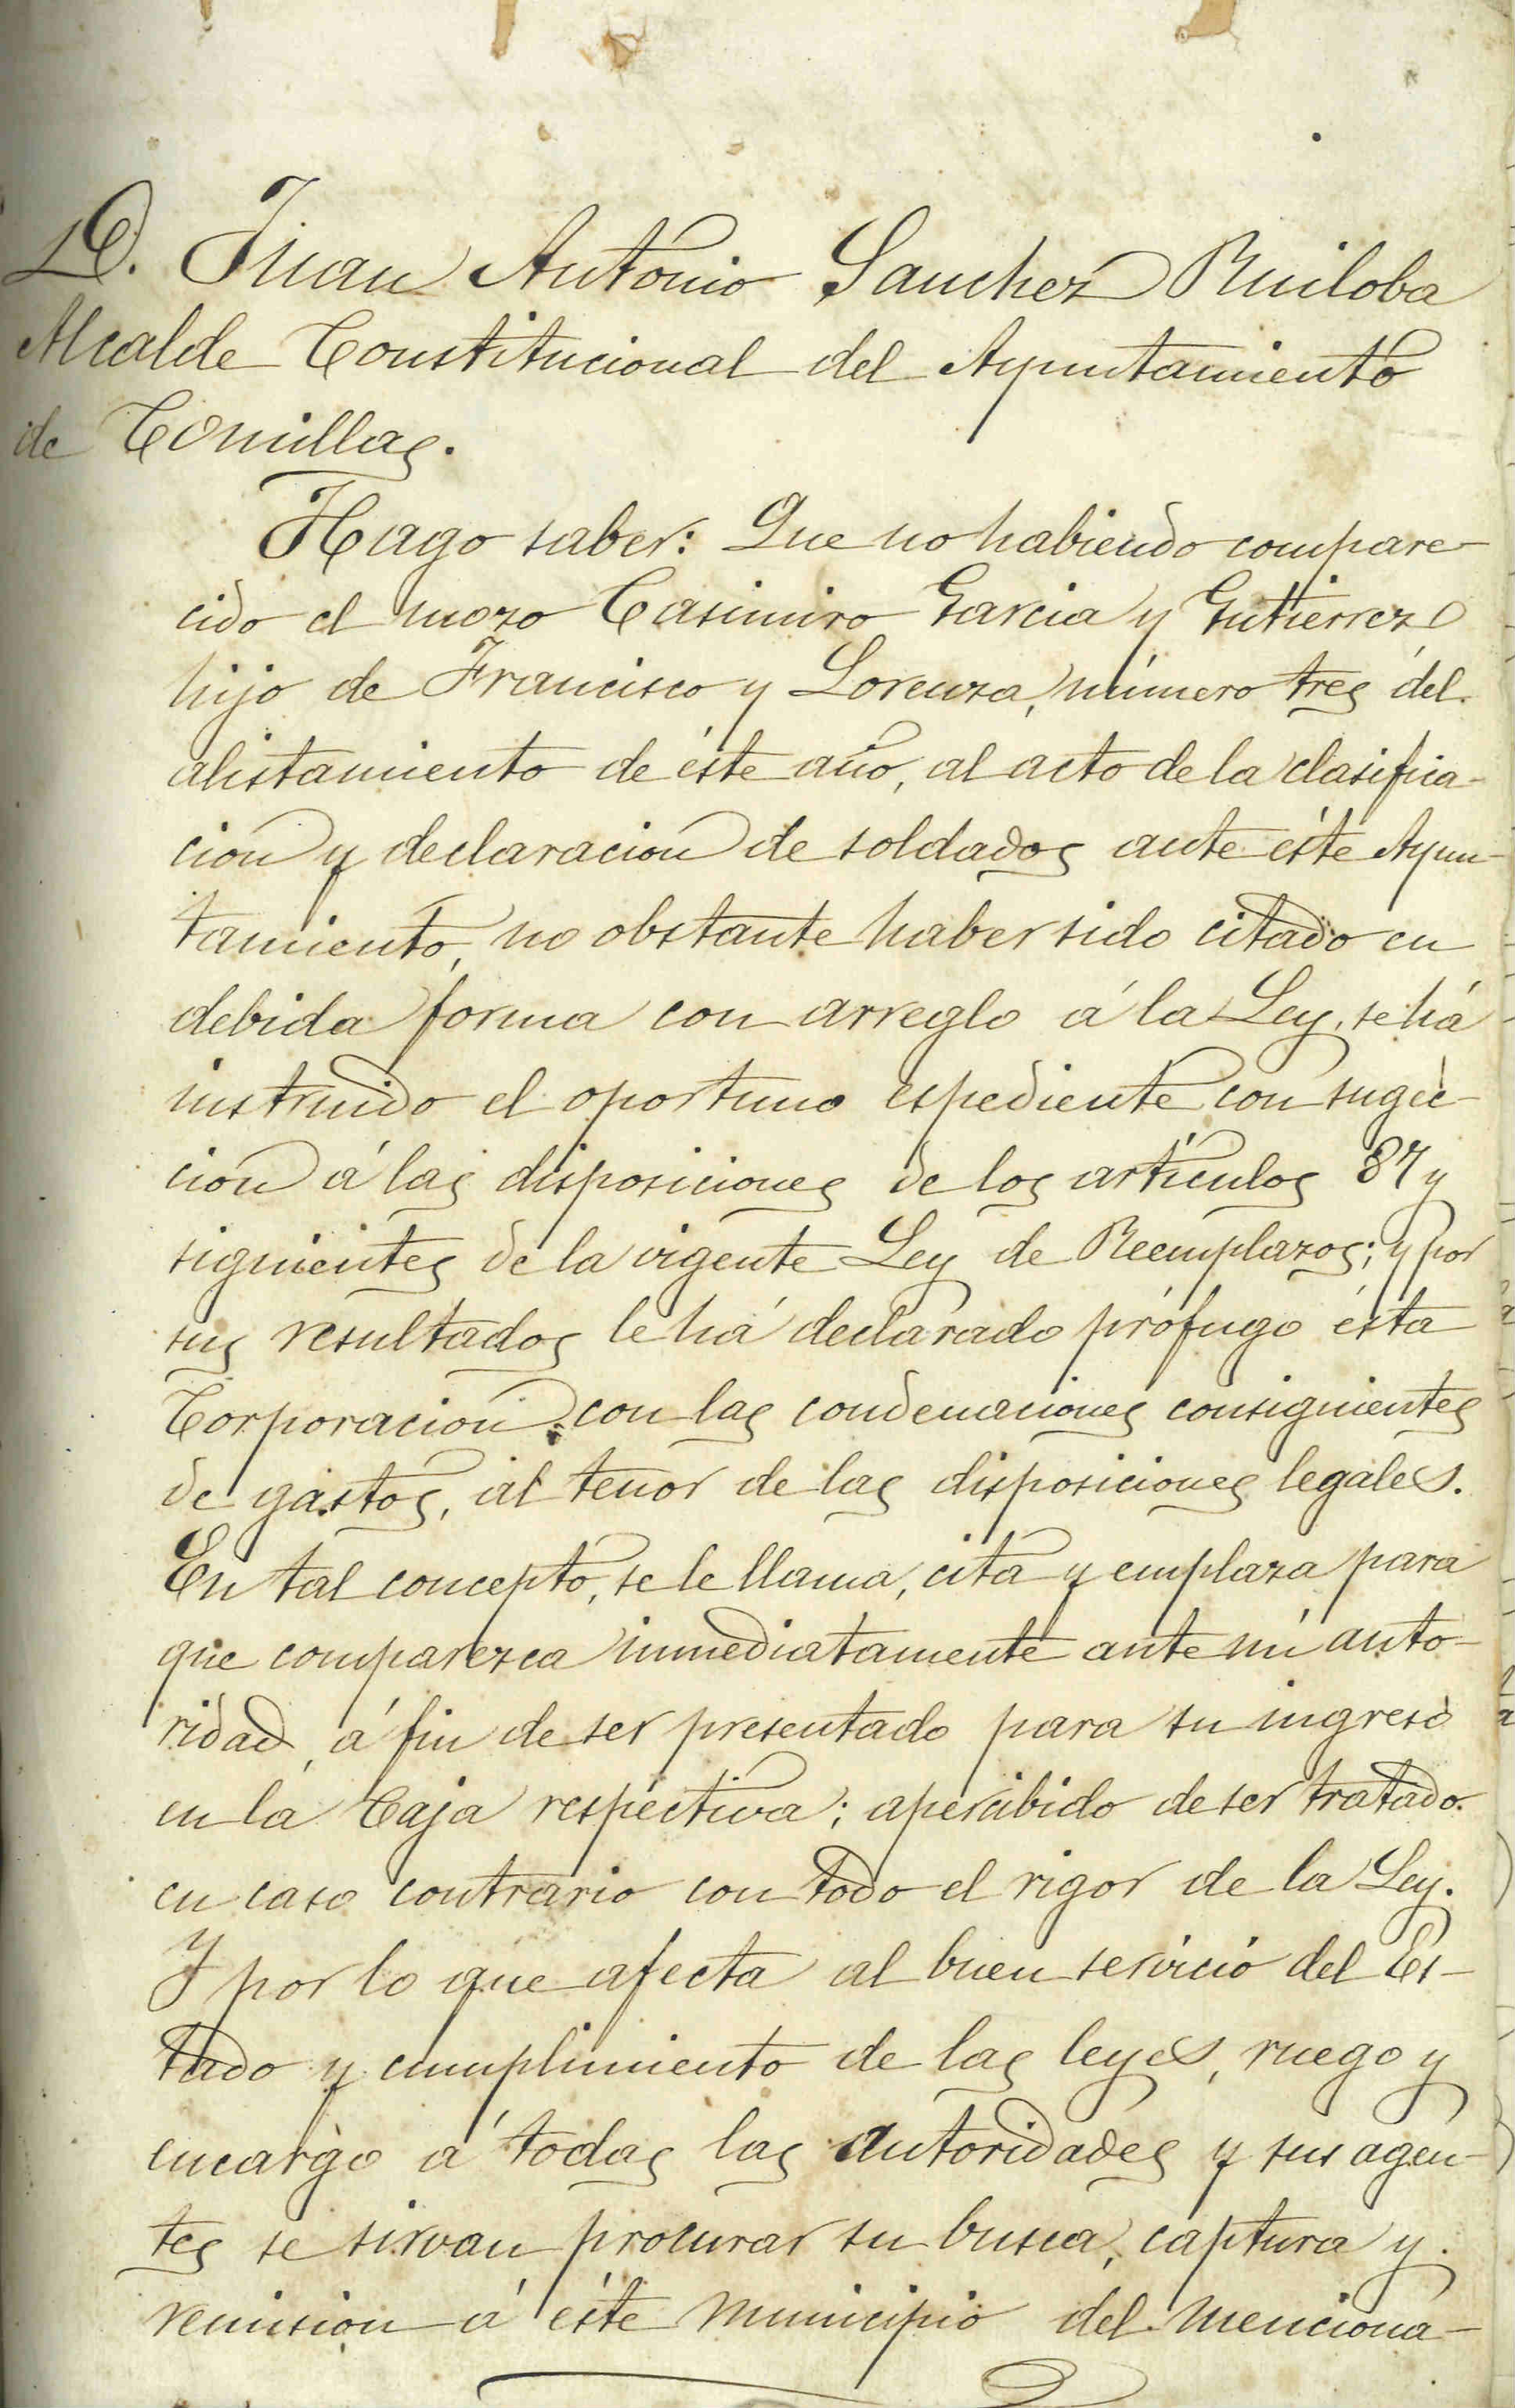 D. Juan Antonio Sanchez Ruiloba
Alcalde Constitucional del Ayuntamiento
de Comillas.
Hago saber: Que no habiendo compare-
cido el mozo Casimiro Garcia y Gutierrez
hijo de Francisco y Lorenza, número tres del
alistamiento de éste año, al acto de la clasifica-
cion y declaracion de soldados ante éste Ayun-
tamiento, no obstante haber sido citado en
debida forma con arreglo á la Ley, se há
instruido el oportuno espediente con sugec-
cion á las disposiciones de los artículos 87 y
siguientes de la vigente Ley de Reemplazos; y por
sus resultados le há declarado prófugo ésta
Corporacion con las condenaciones consiguientes
de gastos, al tenor de las disposiciones legales.
En tal concepto, se le llama, cita y emplaza para
que comparezca inmediatamente ante mi auto-
ridad, á fin de ser presentado para su ingreso
en la Caja respectiva; apercibido de ser tratado
en caso contrario con todo el rigor de la Ley.
Y por lo que afecta al buen servicio del Es-
tado y cumplimiento de las leyes, ruego y
encargo á todas las autoridades y sus agen-
tes se sirvan procurar su busca, captura y
remision á éste Municipio del menciona-